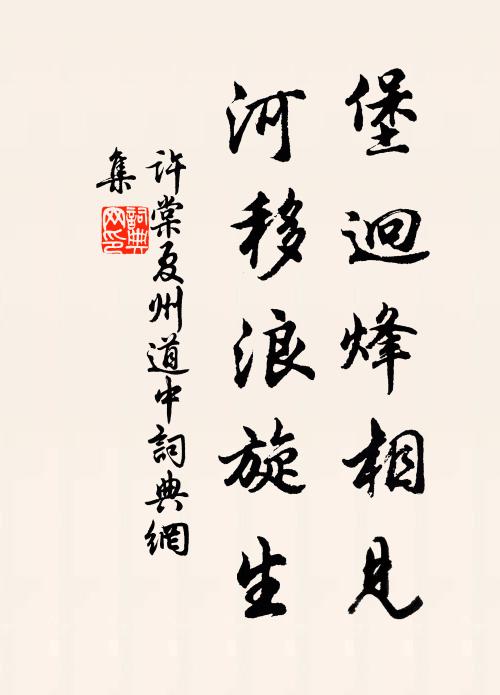 堡迥烽相見
河移浪旋生
許棠夏州道中詞典網
集
詞典
网印